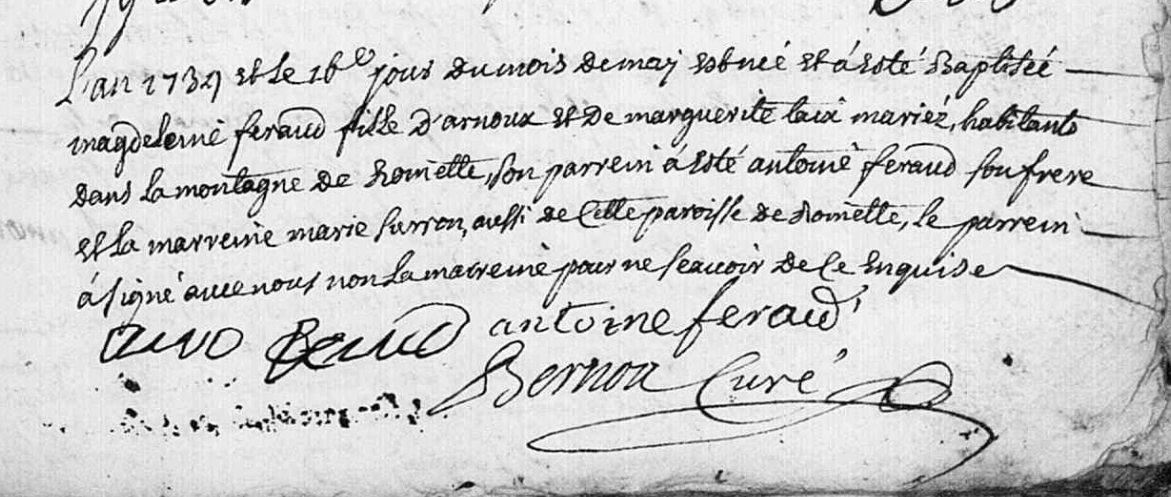 L'an 1734 et le 16e jour du mois de may est née et á esté Baptisée
magdeleine feraud fille d'arnoux et de marguerite taix mariéz, habitants
dans la montagne de Romette, son parrein á esté antoine feraud son frere
et la marreine marie surron, aussi de Cette paroisse de Romette, le parrein
á signé avec nous non la marreine pour ne scavoir de Ce Enquise
antoine feraud
Bernou Curé